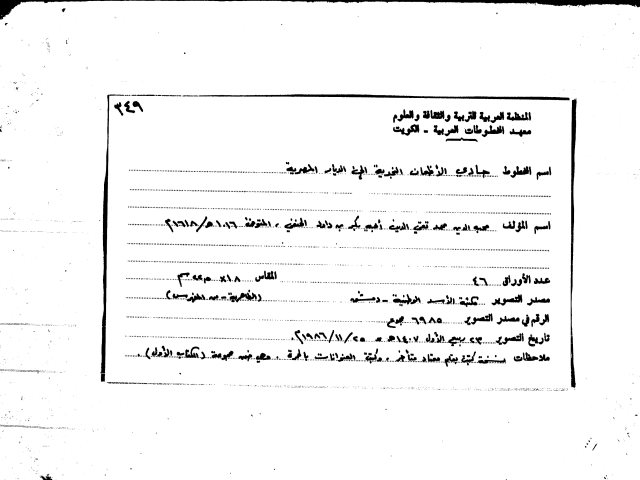 ٣٤٩
المنظمة العربية للتربية والثقافة والعلوم
معهد المخطوطات العربية - الكويت
اسم المخطوط حادي الأظعان النجدية إلى الديار المصرية
اسم المؤلف محب الدين محمد تقي الدين أبي بكر بن داود الحنفي، المتوفى ١٠١٦هـ/١٦٠٨م
عدد الأوراق ٤٦ المقاس ١٨×
مصدر التصوير مكتبة الأسد الوطنية - دمشق (الظاهرية -
الرقم في مصدر التصوير ٦٩٨٥ مجموع
تاريخ التصوير ٢٣ ربيع الأول ١٤٠٧هـ = ٢٥/١١/١٩٨٦م
ملاحظات نسخة كتبت بقلم معتاد متأخر، وكتبت العنوانات بالحمرة. وهي ضمن مجموعة (الكتاب الأول).